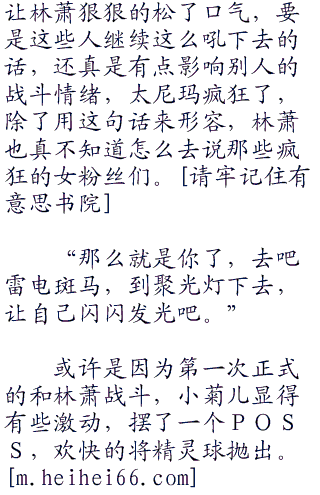 让林萧狠狠的松了口气，要
是这些人继续这么吼下去的
话，还真是有点影响别人的
战斗情绪，太尼玛疯狂了，
除了用这句话来形容，林萧
也真不知道怎么去说那些疯
狂的女粉丝们。[请牢记住有
意思书院]
“那么就是你了，去吧
雷电斑马，到聚光灯下去，
让自己闪闪发光吧。”
或许是因为第一次正式
的和林萧战斗，小菊儿显得
有些激动，摆了一个ＰＯＳ
Ｓ，欢快的将精灵球抛出。
[m.heihei66.com]